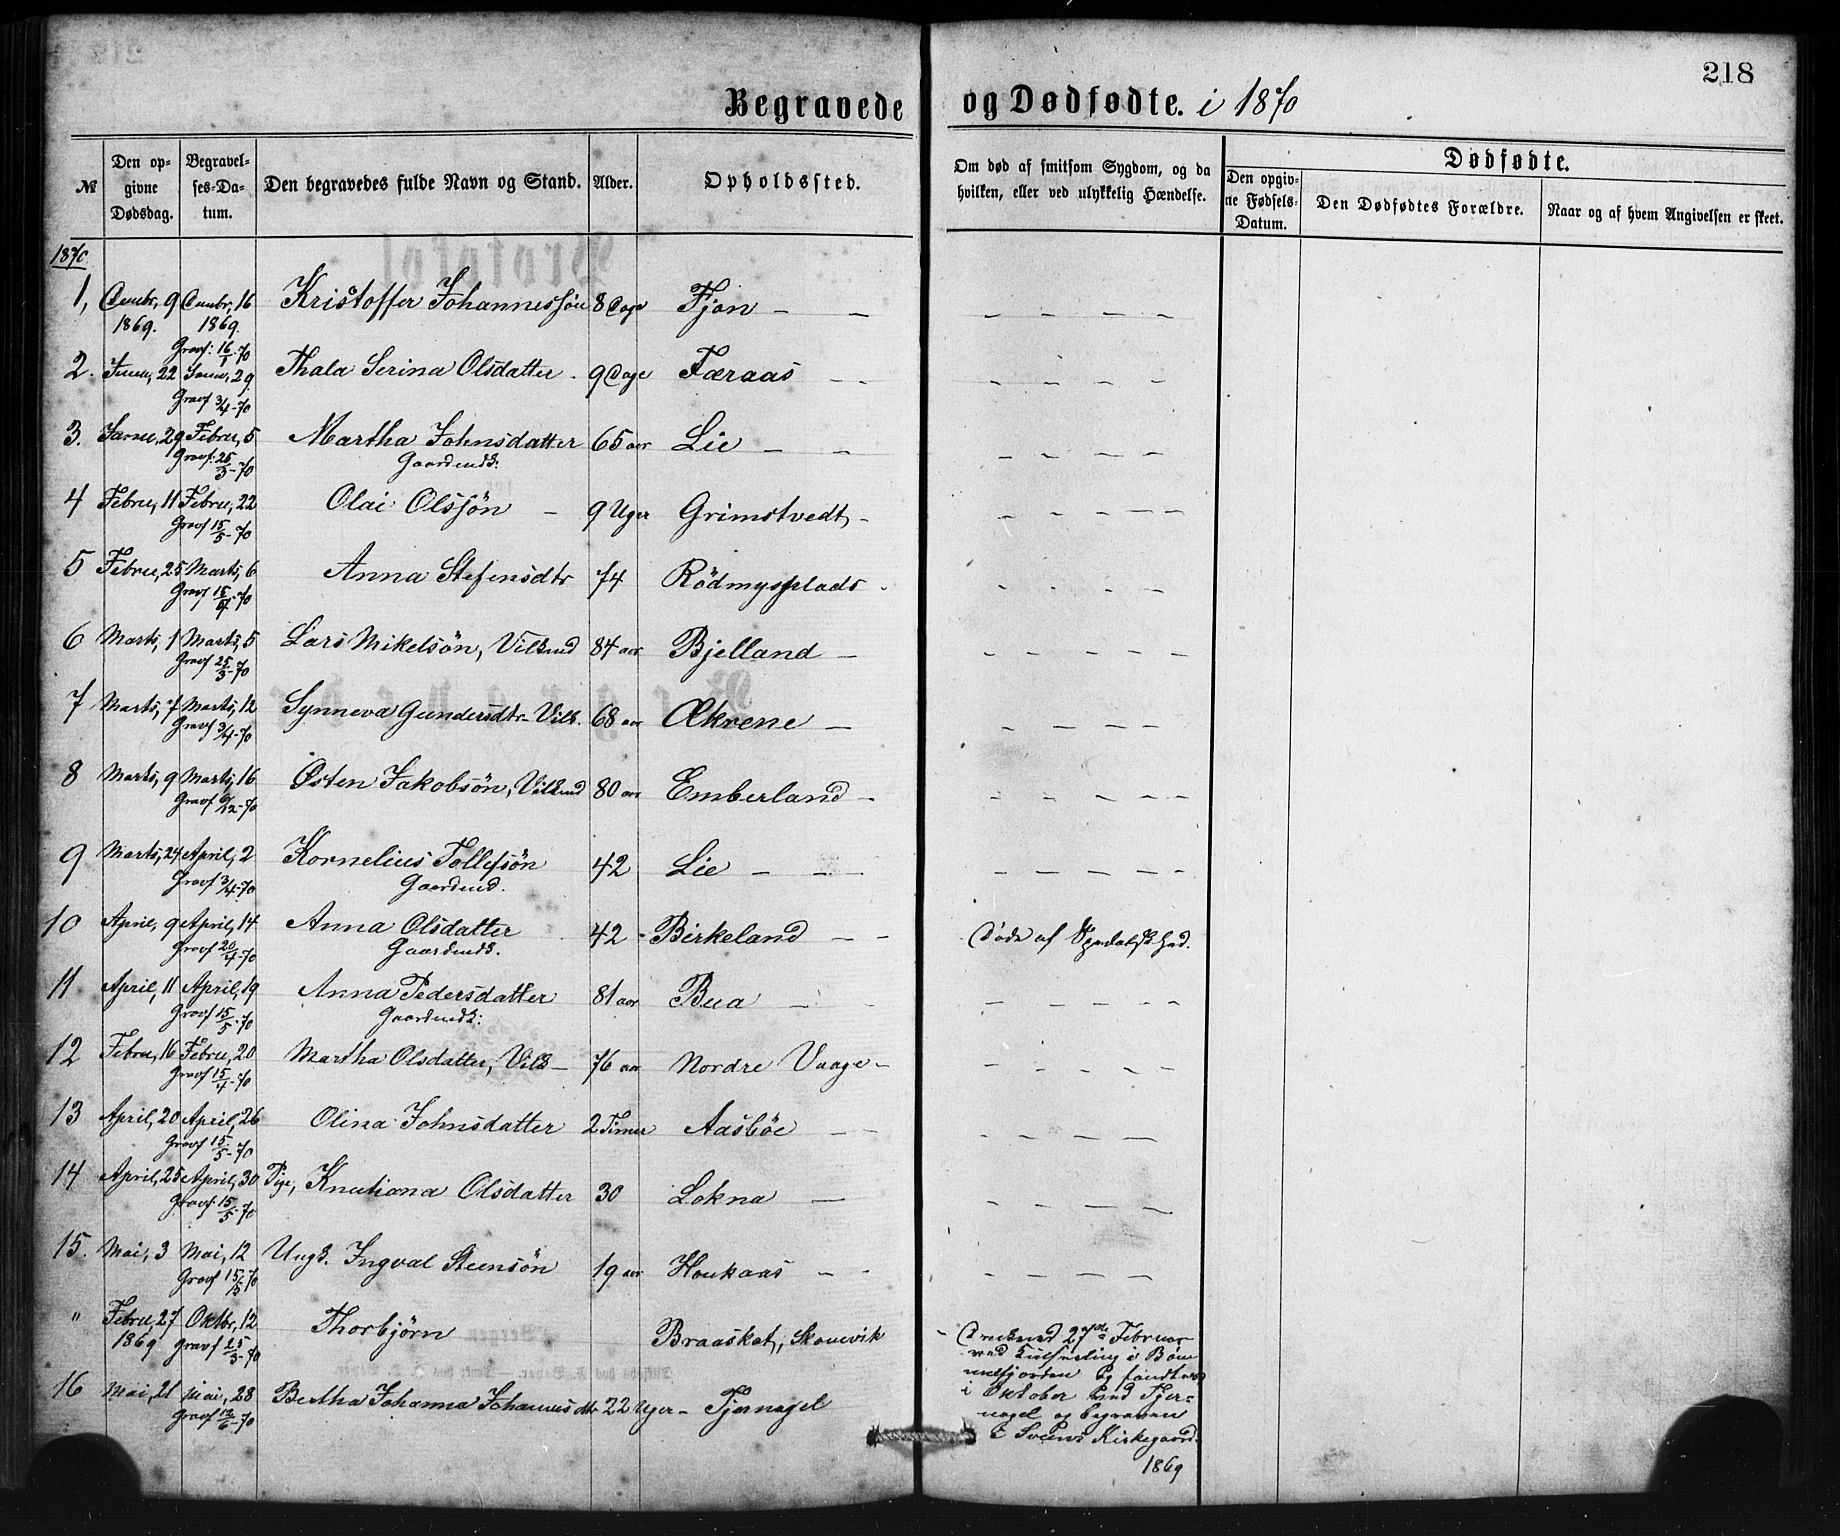 218
Begravede og Dødfødte. i 1870
№ Den opgivne Dødsdag. Begravelses-Datum. Den begravedes fulde Navn og Stand. Alder. Opholdssted. Om død af smitsom Sygdom, og da hvilken, eller ved ulykkelig Hændelse. Dødfødte. Den opgivne Fødsels-Datum. Den Dødfødtes Forældre. Naar og af hvem Angivelsen er skeet.
1870
1, Decmbr, 9 1869. Decmbr, 16 1869. Kristoffer Johannessön 8 Dage Fjon – – – – – –
Gravf: 16/1-70
2. Janu, 22 Janu, 29. Thala Serina Olsdatter. 9 Dage Færaas – – – – – –
Gravf 3/4-70
3. Janu, 29 Febru, 5 Martha Johnsdatter 65 aar Lie – – – – – –
Gravf: 25/3-70 Gaardmdk:
4 Febru, 11 Febru, 22 Olai Olssön – 9 Uger Grimstvedt – – – – –
Gravf 15/5-70
5 Febru, 25 Marts, 6 Anna Stefensdtr 74 Rödmysplads – – – – –
Gravf 15/5-70
6 Marts, 1 Marts, 5 Lars Mikelsön, Vilkmd 84 aar Bjelland – – – – – –
Gravf 25/3-70
7 Marts, 7 Marts, 12 Synneva Gundersdtr Vilk. 68 aar Økrene – – – – –
Gravf 3/4-70
8 Marts, 9 Marts, 16 Østen Jakobsön, Vilkmd 80 aar Emberland – – – – – –
Gravf 6/12-70
9 Marts, 24 April, 2 Kornelius Tollefsön 42 Lie – – – – – – – –
Gravf 3/4-70 Gaardmd.
10 April, 9 April, 14 Anna Olsdatter 42 - Birkeland – – Døde af Spedalskhed.
Gravf 20/4-70 Gaardmdk.
11 April, 11 April, 19 Anna Pedersdatter 81 aar Bua – – – – – –
Gravf 15/5-70 Gaardmdk:
12 Febru, 16 Febru, 20 Martha Olsdatter, Vilk – 76 aar Nordre Vaage – – – – – –
Gravf 15/4-70
13 April, 20 April, 26 Olina Johnsdatter 2 Timer Aasböe – – – – – – –
Gravf 15/5-70
14 April, 25 April, 30 Pige, Knutiana Olsdatter 30 Lokna – – – – – –
Gravf 15/5-70
15. Mai, 3 Mai, 12 Ungk. Ingval Steensön 19 aar Haukaas – – – – – – –
Gravf 15/5-70
" Febru, 27 1869 Oktbr, 12 Thorbjörn Braaskat, Skonevik – Druknede 27de Februar
Gravf 25/3-70 ved Kuldseiling i Böm-
melfjorden og fandtes
16 Mai, 21 Mai, 28 Bertha Johanna Johannesdtr 22 Uger – Tjernagel i Oktober ved Tjer-
Gravf 12/6-70 nagel og begraven
i Sveens Kirkegaard.
1869